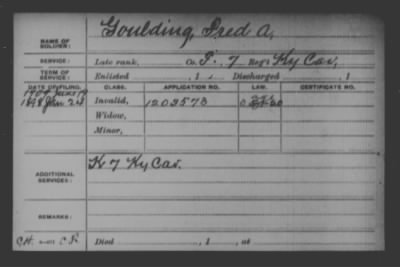 NAME OF SOLDIER: Goulding, Fred A.
SERVICE: Late rank, Co. F, 7 Reg't Ky Cav.,
TERM OF SERVICE: Enlisted , 1 . Discharged , 1
DATE OF FILING. CLASS. APPLICATION NO. LAW. CERTIFICATE NO.
1907 June 19
1898 Jan 24 Invalid, 1203573
Widow,
Minor,
ADDITIONAL SERVICES: K 7 Ky Cav.
REMARKS:
C.H. Died , 1 , at